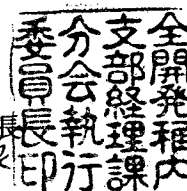 全開発稚内
支部経理課
分会執行
委員長印